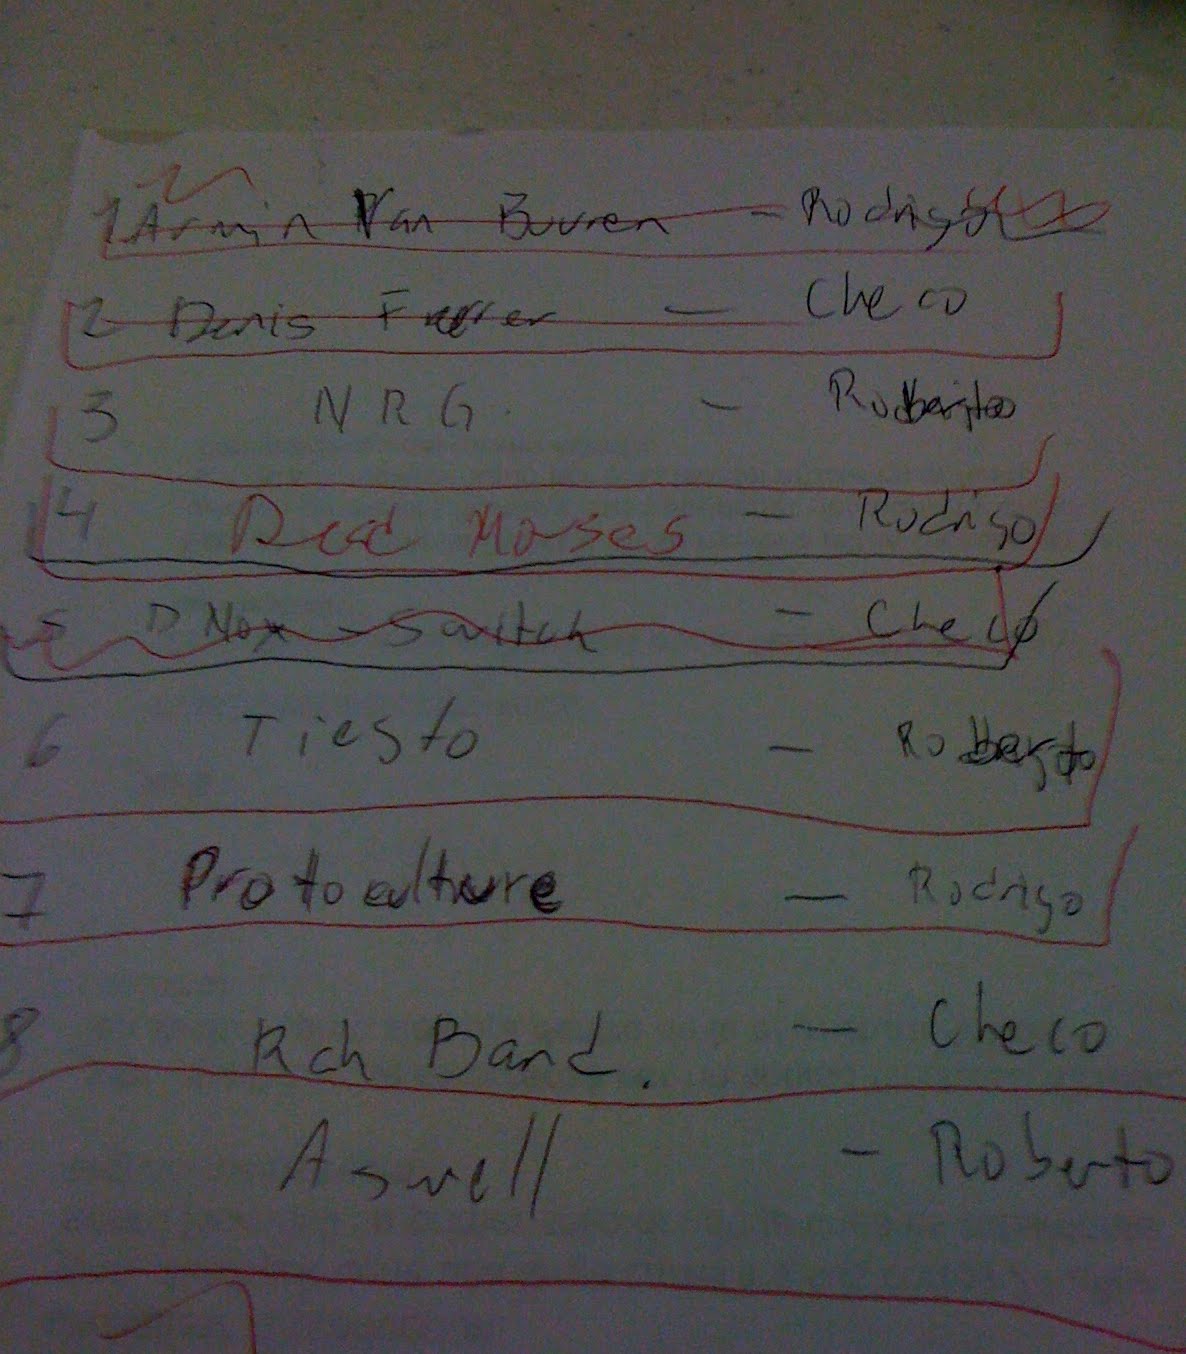 1 Armin Van Buuren - Rodrigo
2 Denis Ferrer - Checo
3 NRG. - Roberto
4 Dead Mouses - Rodrigo
5 D Nox - Switch - Checo
6 Tiesto - Roberto
7 Protoculture - Rodrigo
8 Rch Band. - Checo
Aswell - Roberto